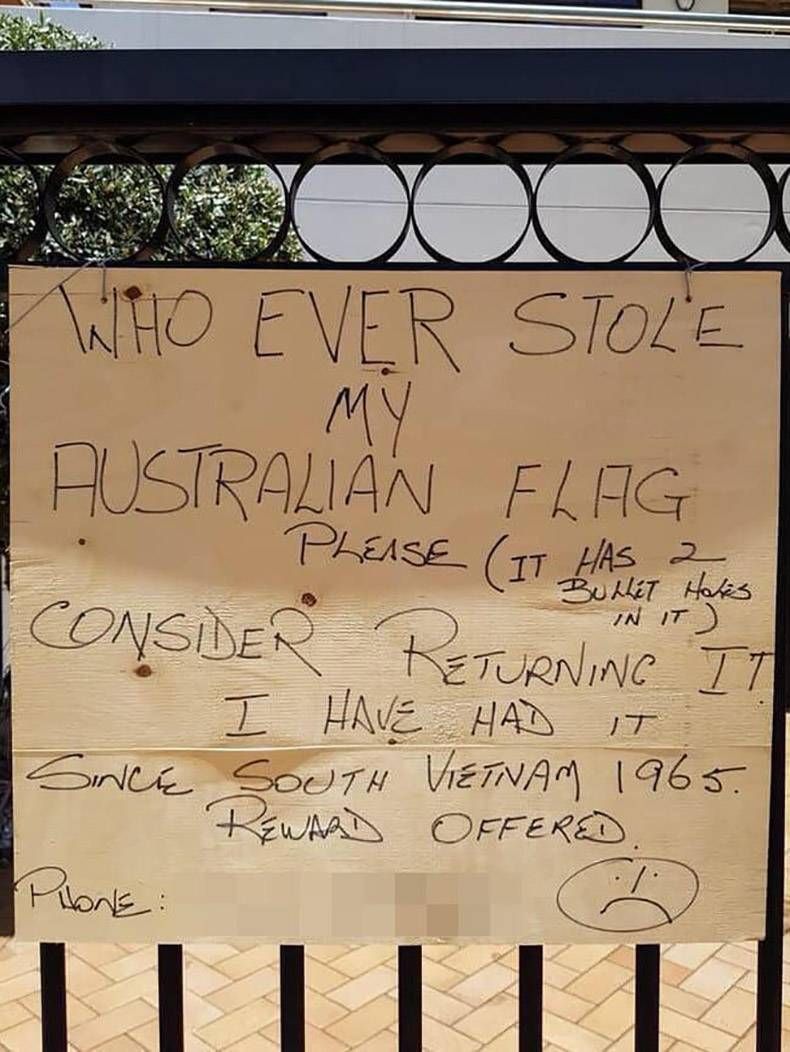 WHO EVER STOLE
MY
AUSTRALIAN FLAG
PLEASE (IT HAS 2
BULLET HOLES
IN IT)
CONSIDER RETURNING IT
I HAVE HAD IT
SINCE SOUTH VIETNAM 1965.
REWARD OFFERED.
PHONE: